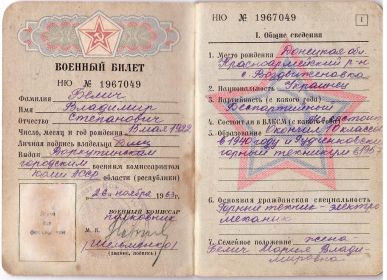 ВОЕННЫЙ БИЛЕТ
НЮ № 1967049
Фамилия Белич
Имя Владимир
Отчество Степанович
Число, месяц и год рождения 8 мая 1922
Личная подпись владельца Белич
Выдан Воркутинским
городским военным комиссариатом
Коми АССР области (республики)
26 ноября 1963 г.
ВОЕННЫЙ КОМИССАР
полковник
М. П.
(звание, подпись)
НЮ № 1967049
1
I. Общие сведения
1. Место рождения Донецкая обл.
Красноармейский р-н
с.
2. Национальность Украинец
3. Партийность (с какого года)
Беспартийный
4. Состоит ли в ВЛКСМ (с какого года)
5. Образование Окончил 10 классов
в 1940 году и
горный техникум в 195
6. Основная гражданская специальность
Горный техник-электро
механик
7. Семейное положение жена-
Белич Мария Влади-
мировна